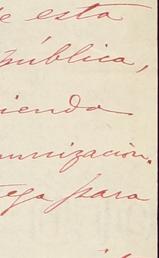 e esta
pública,
iendo
munización.
ega para